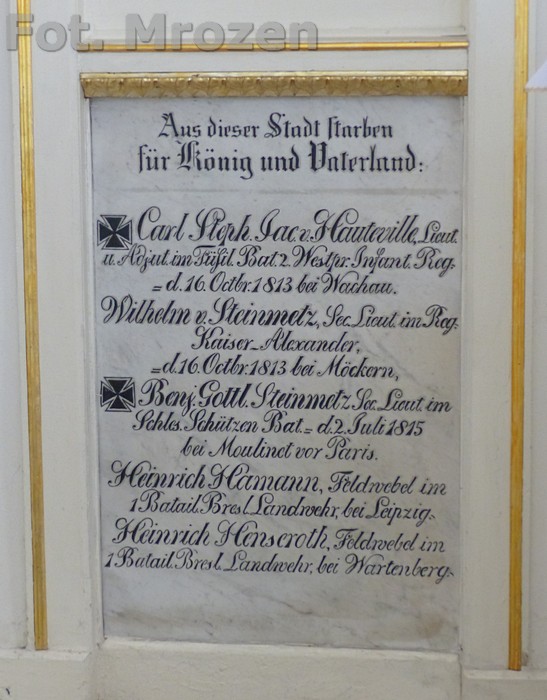 Fot. Mrozen
Aus dieser Stadt starben
für König und Vaterland:
Carl Steph. Jac. v. Hauteville, Lieut.
u. Adjut. im Füsil. Bat. 2. Westpr. Infant. Reg.
= d. 16. Octbr. 1813 bei Wachau.
Wilhelm v. Steinmetz, Sec. Lieut. im Reg.
Kaiser-Alexander,
= d. 16. Octbr. 1813 bei Möckern,
Benj. Gottl. Steinmetz Sec. Lieut. im
Schles. Schützen Bat. = d. 2. Juli 1815
bei Moulinet vor Paris.
Heinrich Hamann, Feldwebel im
1 Batail. Bresl. Landwehr, bei Leipzig.
Heinrich Henseroth, Feldwebel im
1 Batail. Bresl. Landwehr, bei Wartenberg.